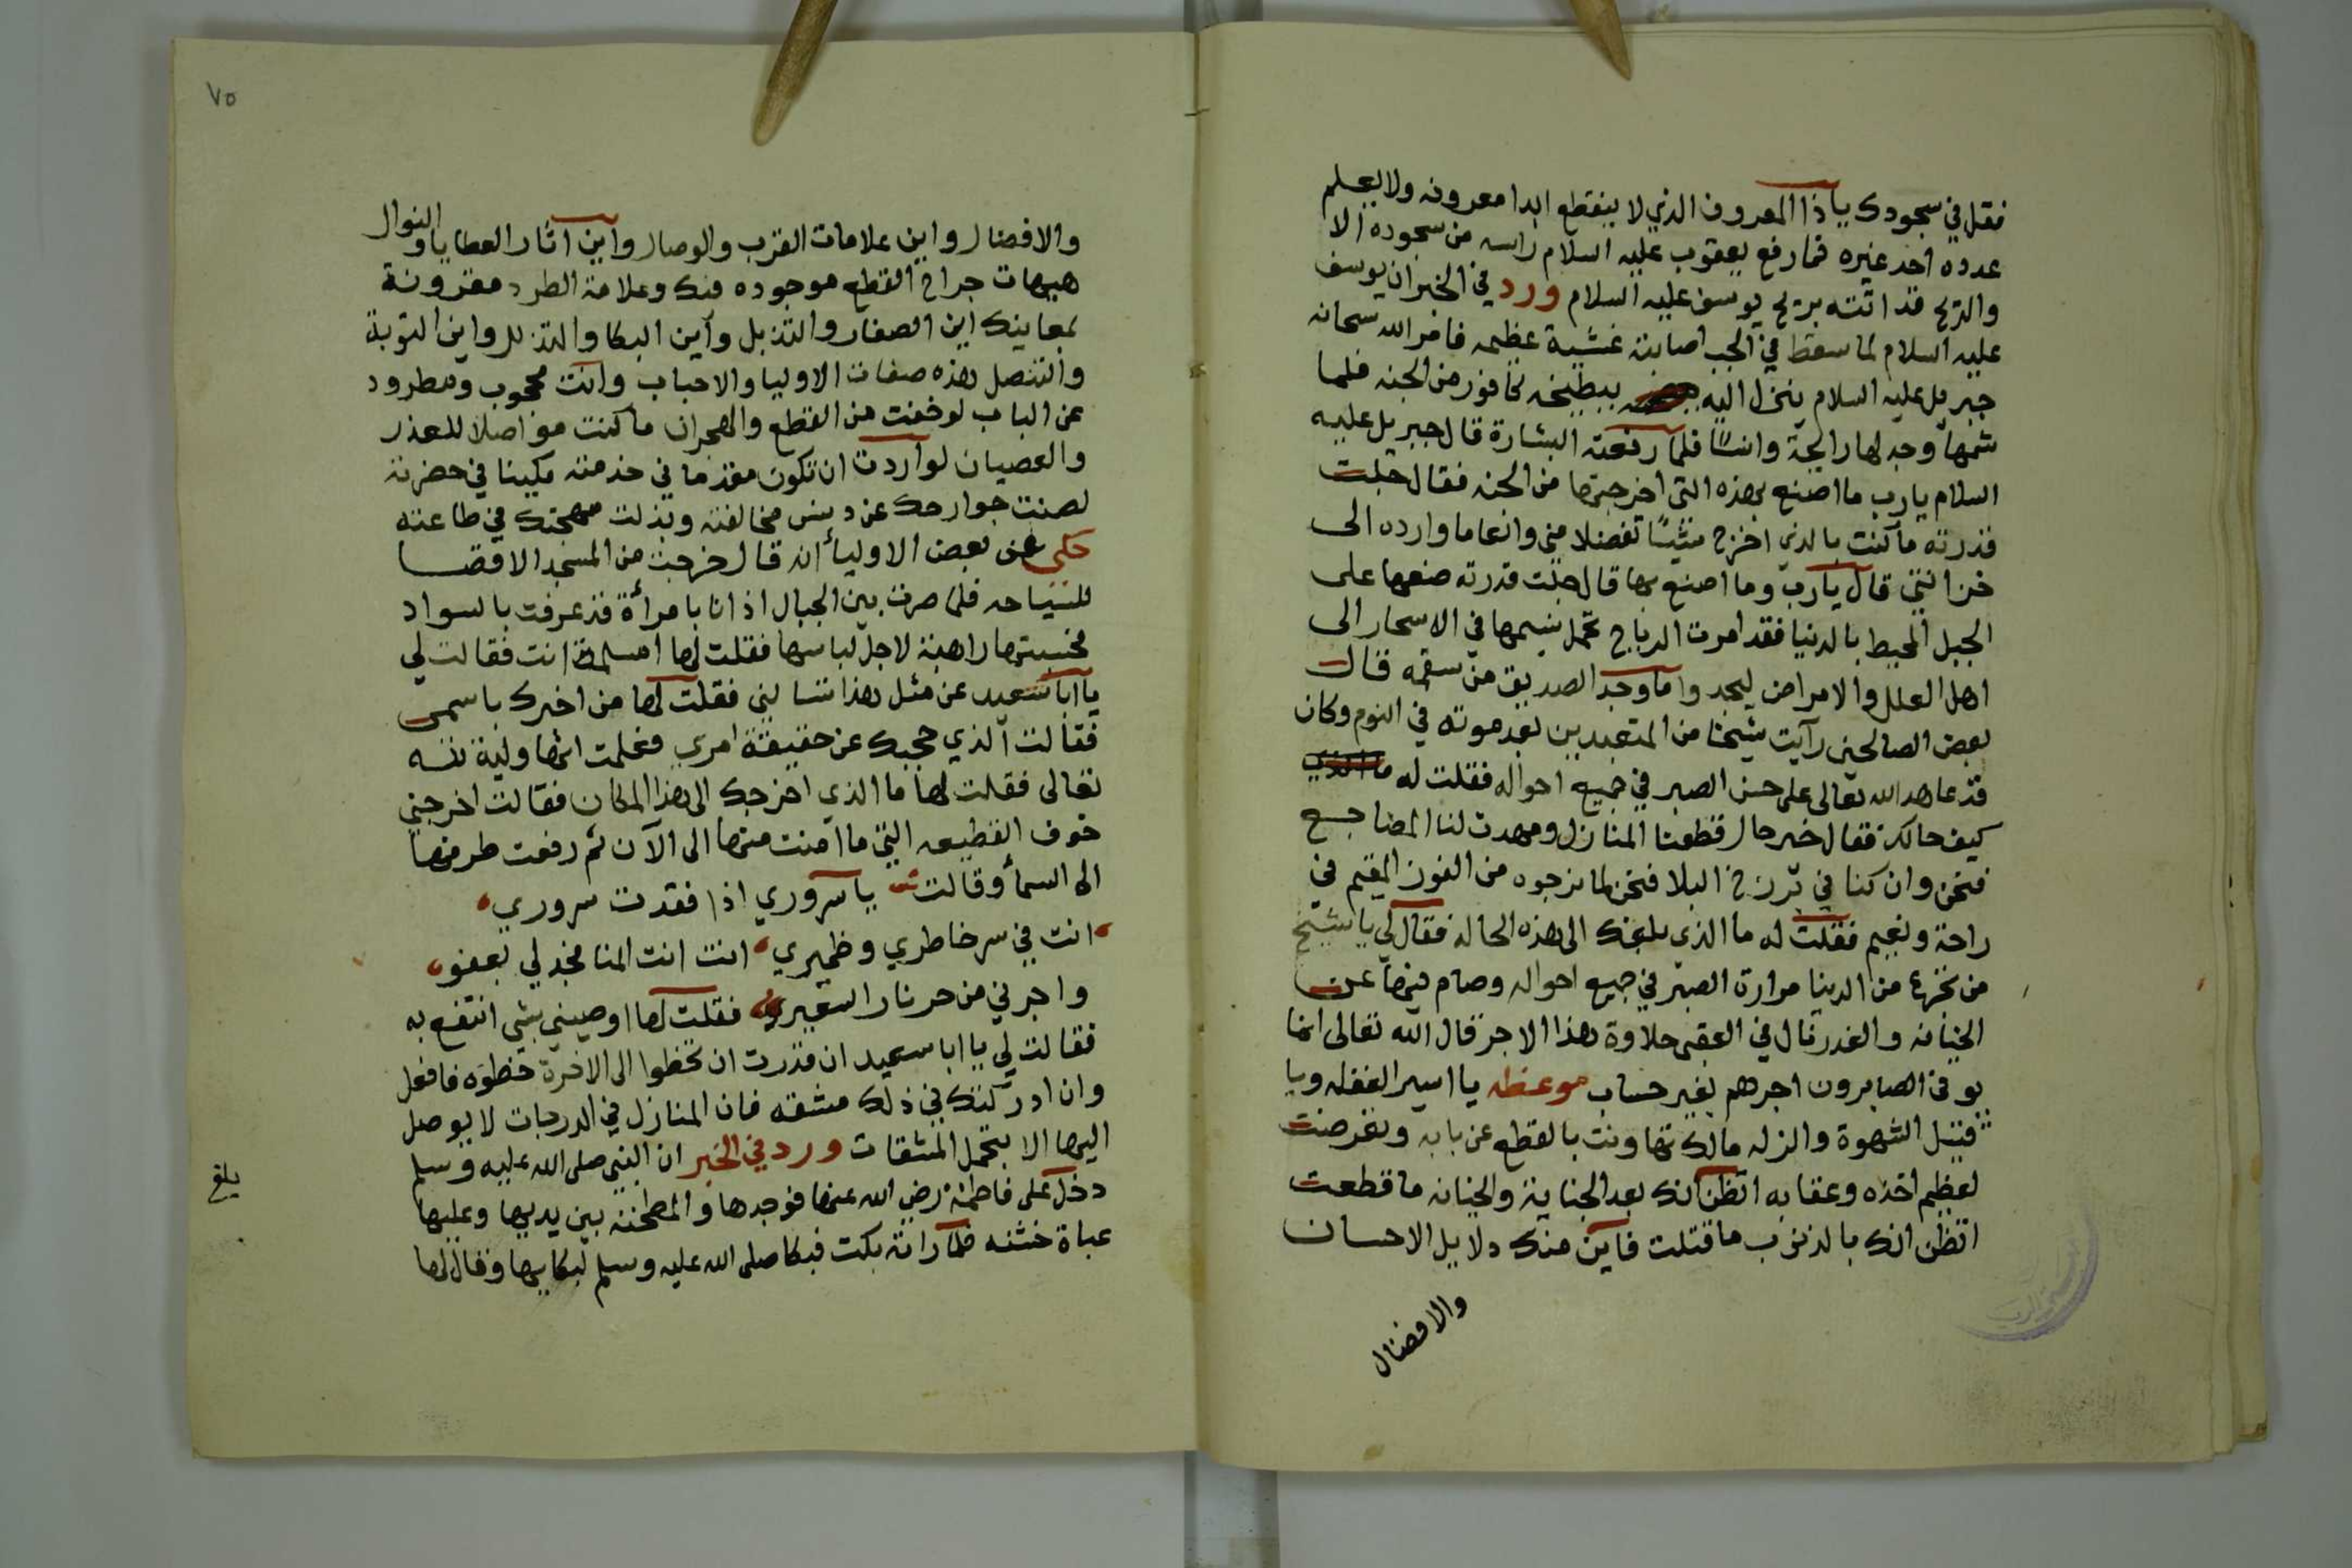 فقل في سجودك ياذا المعروف الذي لا ينقطع ابدا معروفه ولا يعلم
عدده احد غيره فما رفع يعقوب عليه السلام راسه من سجوده الا
والريح قد اتته بريح يوسف عليه السلام ورد في الخبر ان يوسف
عليه السلام لما سقط في الجب اصابته غشية عظيمه فامر الله سبحانه
جبريل عليه السلام ينزل اليه ببطيخه كافور من الجنه فلما
شمها وجد لها رايحة وانسا فلما رفعته البشارة قال جبريل عليه
السلام يارب ما اصنع بهذه التي اخرجتها من الجنه فقال جلت
قدرته ما كنت بالذي اخرج شيئا تفضلا مني وانعاما وارده الى
خزانتي قال يارب وما اصنع بها قال جلت قدرته ضعها على
الجبل المحيط بالدنيا فقد امرت الرياح تحمل نسيمها في الاسحار الى
اهل العلل والامراض ليجدوا ما وجد الصديق من سقمه قال
بعض الصالحين رآيت شيخا من المتعبدين بعد موته في النوم وكان
قد عاهد الله تعالى على حسن الصبر في جميع احواله فقلت له ما الذي
كيف حالك فقال خير حال قطعنا المنازل ومهدت لنا المضاجع
فنحن وان كنا في برزخ البلا فنحن لما نرجوه من الفوز المقيم في
راحة ونعيم فقلت له ما الذي بلغك الى هذه الحاله فقال لي يا شيخ
من تجرع من الدنيا مرارة الصبر في جميع احواله وصام فيها عن
الخيانه والغدر نال في العقبى حلاوة هذا الاجر قال الله تعالى انما
يوفى الصابرون اجرهم بغير حساب موعظه يا اسير الغفله ويا
قتيل الشهوة والزله مالك تهاونت بالقطع عن بابه وتعرضت
لعظيم اخذه وعقابه اتظن انك بعد الجناية والخيانه ما قطعت
اتظن انك بالذنوب ما قتلت فاين منك دلايل الاحسان
والافضال
٧٥
والافضال واين علامات القرب والوصال واين اثار العطايا والنوال
هيهات جراح القطع موجوده منك وعلامة الطرد مقرونة
بمعاينك اين الصفار والتذبل وآين البكا والتذلل واين التوبة
والتنصل هذه صفات الاوليا والاحباب وانت محجوب ومطرود
عن الباب لو خفت من القطع والهجران ما كنت مواصلا للعذر
والعصيان لو اردت ان تكون مقدما في خدمته مكينا في حضرته
لصنت جوارحك عن دنس مخالفته وبذلت مهجتك في طاعته
حكى عن بعض الاوليآ انه قال خرجت من المسجد الاقصا
للسياحه فلما صرت بين الجبال اذ انا بامرأة قد عرفت بالسواد
فحسبتها راهبة لاجل لباسها فقلت لها امسلمة انت فقالت لي
يا ابا سعيد عن مثل هذا تسالني فقلت لها من اخبرك باسمى
فقالت الذي حجبك عن حقيقة امري فعلمت انها ولية لله
تعالى فقلت لها ما الذي اخرجك الى هذا المكان فقالت اخرجني
خوف القطيعه التي ما امنت منها الى الآن ثم رفعت طرفها
الى السمآ وقالت شعر يا سروري اذا فقدت سروري
انت في سر خاطري وضميري انت انت المنا فجد لي بعفو
واجرني من حر نار السعير فقلت لها اوصيني بشي انتفع به
فقالت لي يا ابا سعيد ان قدرت ان تخطوا الى الاخرة خطوه فافعل
وان ادركتك في ذلك مشقه فان المنازل في الدرجات لا يوصل
اليها الا بتحمل المشقات ورد في الخبر ان النبي صلى الله عليه وسلم
دخل على فاطمة رضي الله عنها فوجدها والمطحنة بين يديها وعليها
عباة خشنه فلما راته بكت فبكا صلى الله عليه وسلم لبكايها وقال لها
بلغ